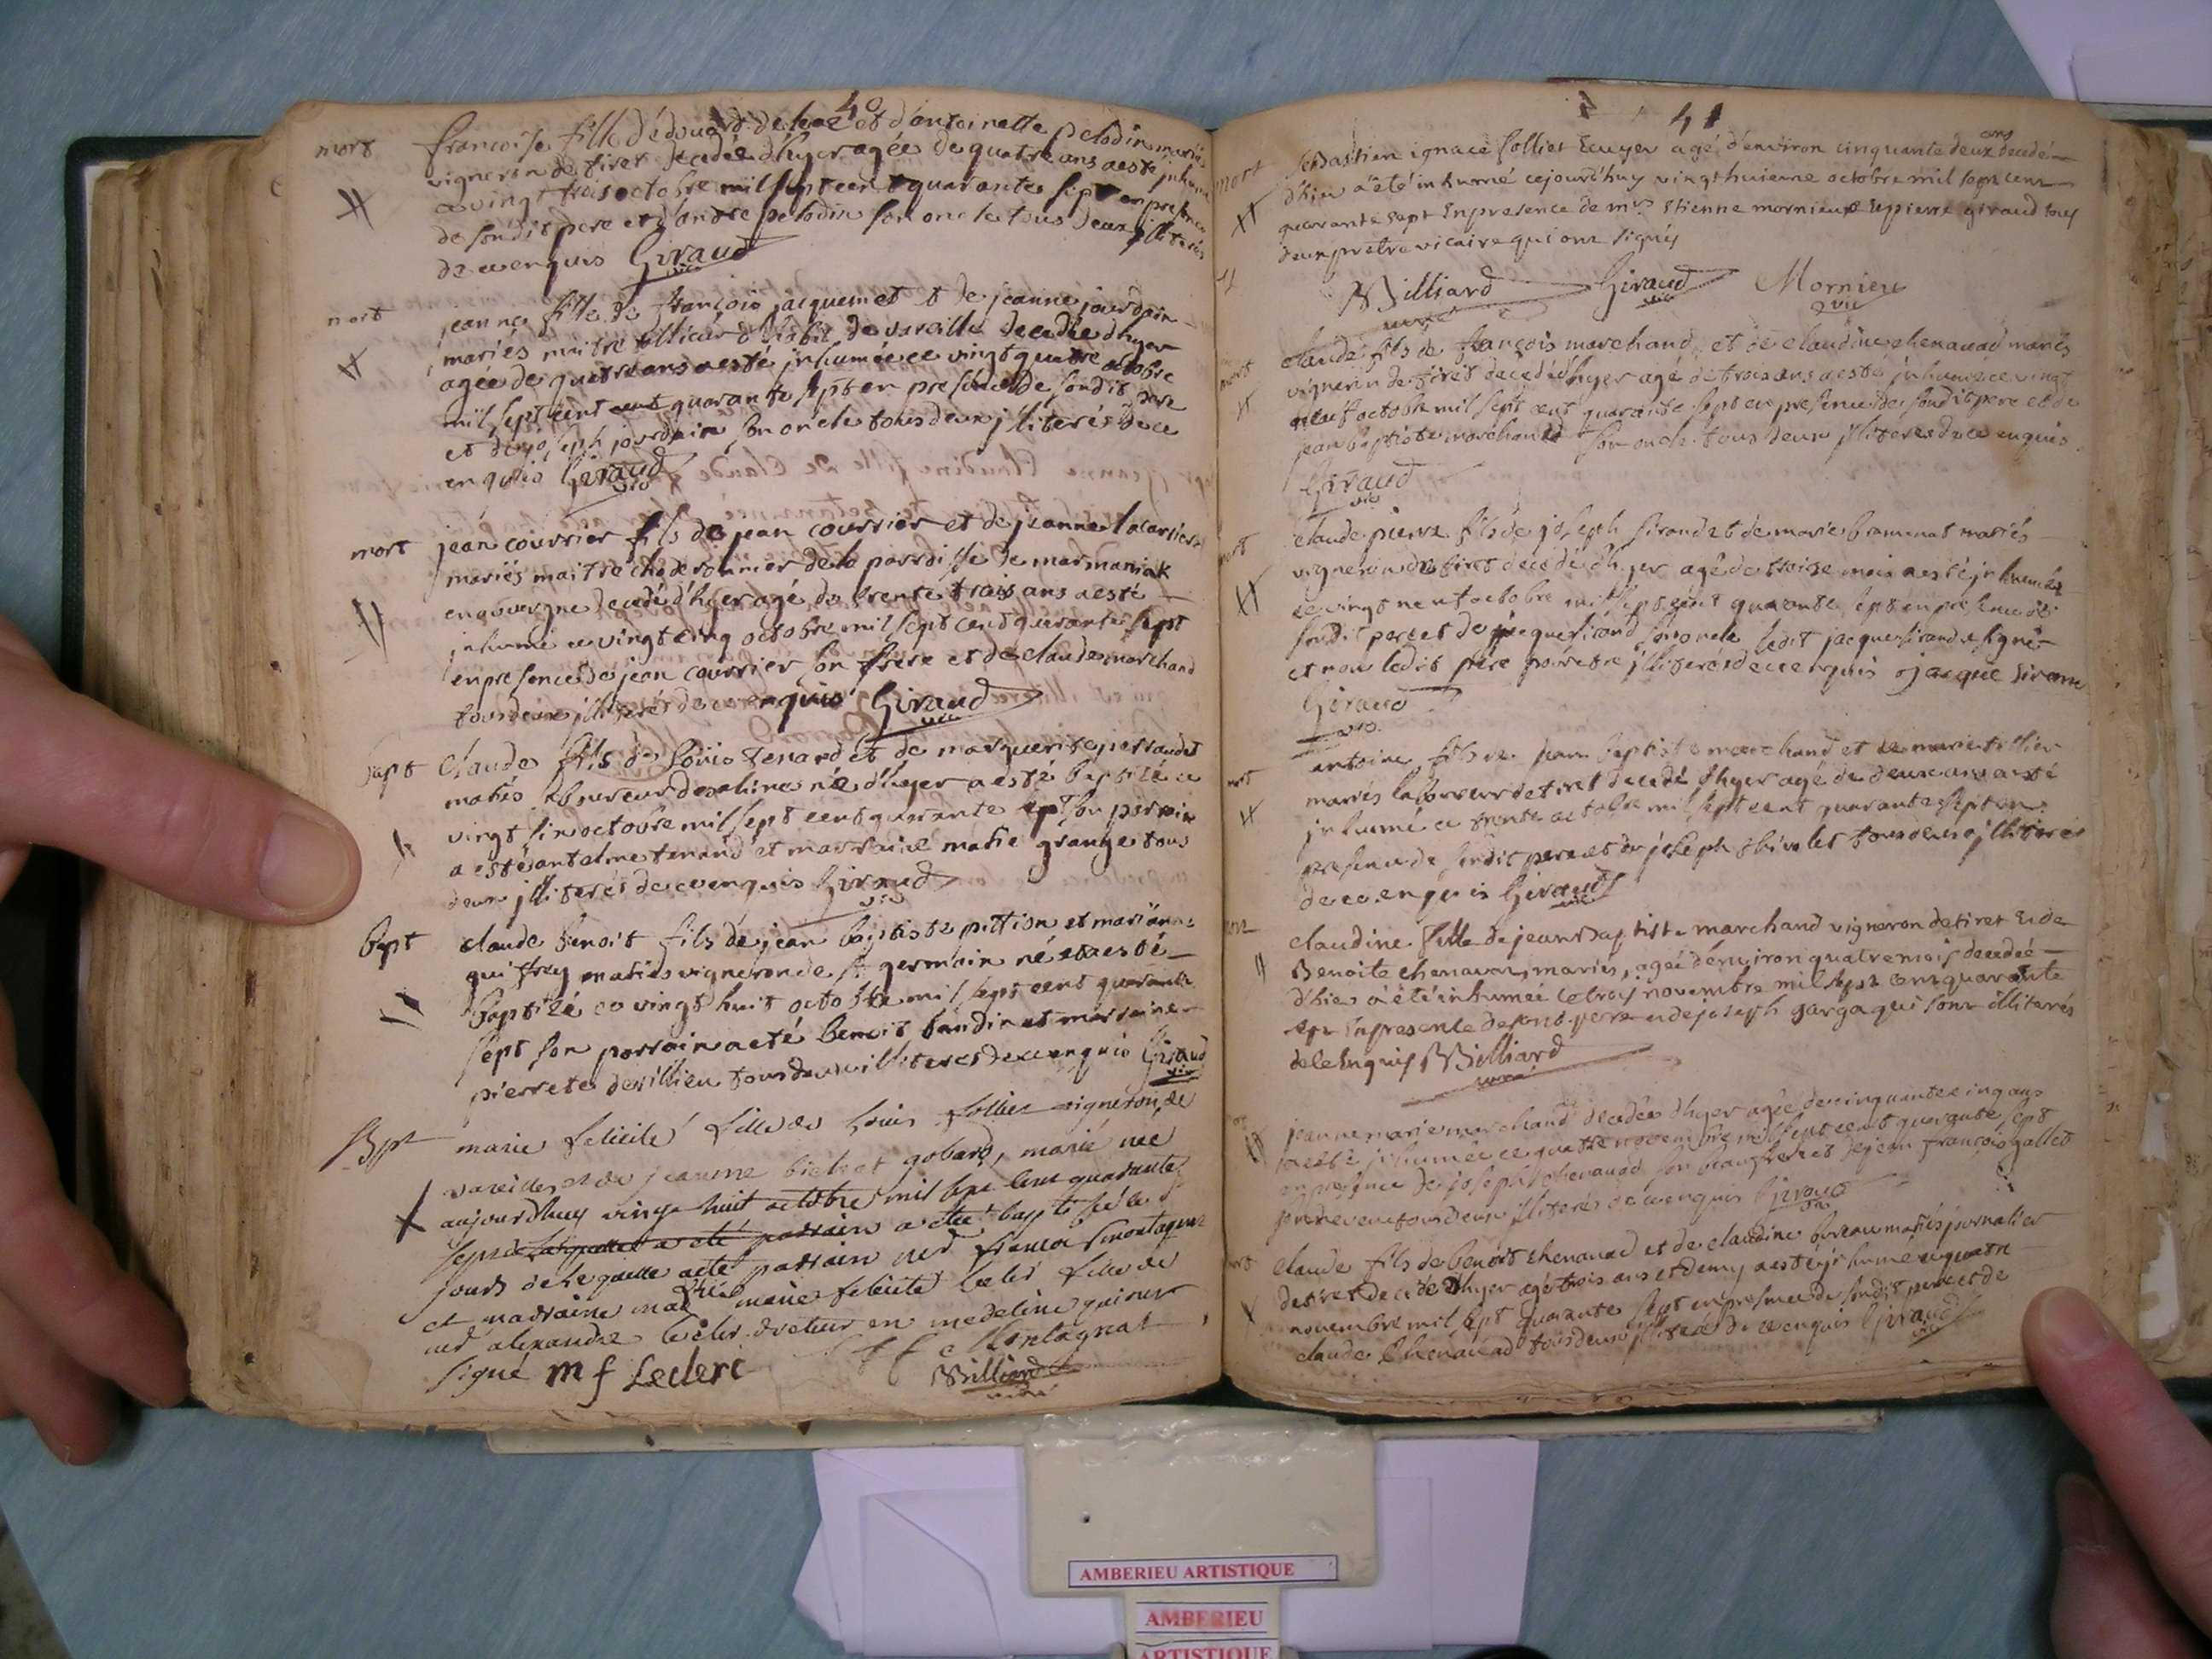 40
mort françoise fille d'édouard de et d'antoinette pelodin mariés
vigneron de tiret decedée d'hyer agée de quatre ans a esté inhumée
ce vingt trois octobre mil sept cent quarante sept en presence
de sondit pere et d'andré pelodin son oncle tous deux illiterés
de ce enquis Giraud vic
mort jeanne fille de françois jacquemet et de jeanne jourdain
mariés maitre habit de vareille decedée d'hyer
agée de quatre ans a esté inhumée ce vingt quatre octobre
mil sept cent quarante sept en presence de sondit pere
et de joseph jourdain son oncle tous deux illiterés de ce
enquis Giraud vic
mort jean courrier fils de jean courrier et de jeanne
mariés maitre chaderonnier de la parroisse de marmaniak
en auvergne decedé d'hyer agé de trente trois ans a esté
inhumé ce vingt cinq octobre mil sept cent quarante sept
en presence de jean courrier son frere et de claude marchand
tous deux illiterés de ce enquis Giraud vic
bapt claude fils de louis tenand et de marguerite perraudet
mariés laboureur des alimes né d'hyer a esté baptizé ce
vingt six octobre mil sept cent quarante sept son parrain
a esté antelme tenand et marraine marie grange tous
deux illiterés de ce enquis Giraud vic
bapt claude benoit fils de jean baptiste pittion et marianne
guiffrey mariés vigneron de st germain né et a esté
baptizé ce vingt huit octobre mil sept cent quarante
sept son parrain a eté benoit baudin et marraine
pierrete devillieu tous deux illiteres de ce enquis Giraud vic
Bpt marie felicité fille de louis follier vigneron de
vareilles et de jeanne gobard, marié née
aujourdhuy vingt huit octobre mil sept cent quarante
sept de laquelle a eté parrain a etée baptisée le
jours de laquelle a eté parrain mr françois montagnat
et marraine madlle marie felicité leclerc fille de
mr alexandre leclerc docteur en medecine qui ont
signé m f Leclerc Montagnat
Billiard curé
41
mort sebastien ignace folliet Ecuyer agé d'environ cinquante deux ans decedé
d'hier a été inhumé cejourd'huy vingt huitieme octobre mil sept cent
quarante sept en presence de mrs Etienne mornieux et pierre giraud tous
deux pretre vicaire qui ont signés
Billiard curé Giraud vic Mornieu vic
mort claude fils de françois marchand et de claudine chenavad mariés
vigneron de tiret decedé d'hyer agé de trois ans a esté inhumé ce vingt
neuf octobre mil sept cent quarante sept en presence de sondit pere et de
jean baptiste marchand son oncle tous deux illiteres de ce enquis
Giraud vic
mort claude pierre fils de joseph sirand et de marie bramerat mariés
vigneron de tiret decedé d'hyer agé de treize mois a esté inhumé
ce vingt neuf octobre mil sept cent quarante sept en presence de
sondit pere et de jacque sirand son oncle ledit jacque sirand a signé
et non ledit pere pour etre illiteré de ce enquis jacque sirane
Giraud vic
mort antoine fils de jean baptiste marchand et de marie tillier
mariés laboureur de tiret decedé d'hyer agé de deux ans a esté
inhumé ce trente octobre mil sept cent quarante sept en
presence de sondit pere et de joseph tous deux illiterés
de ce enquis Giraud vic
mort claudine fille de jean Baptiste marchand vigneron de tiret et de
Benoite chenavaz, mariés, agée d'environ quatre mois decedée
d'hier a été inhumée le trois novembre mil sept cent quarante
sept En presence de sond. pere et de joseph garga qui sont illiterés
de ce Enquis Billiard curé
jeanne marie marchand decedée d'hyer agée de cinquante cinq ans
a esté inhumée ce quatre novembre mil sept cent quarante sept
en presence de joseph chenavad son beaufrere et de jean françois gallet
son neveu tous deux illiterés de ce enquis Giraud vic
mort claude fils de benoit chenavad et de claudine mariés journalier
de tiret decedé d'hyer agé trois ans et demy a esté inhumé ce quatre
novembre mil sept quarante sept en presence de sondit pere et de
claude chenavad tous deux illiteré de ce enquis Giraud vic
AMBERIEU ARTISTIQUE
AMBERIEU
ARTISTIQUE